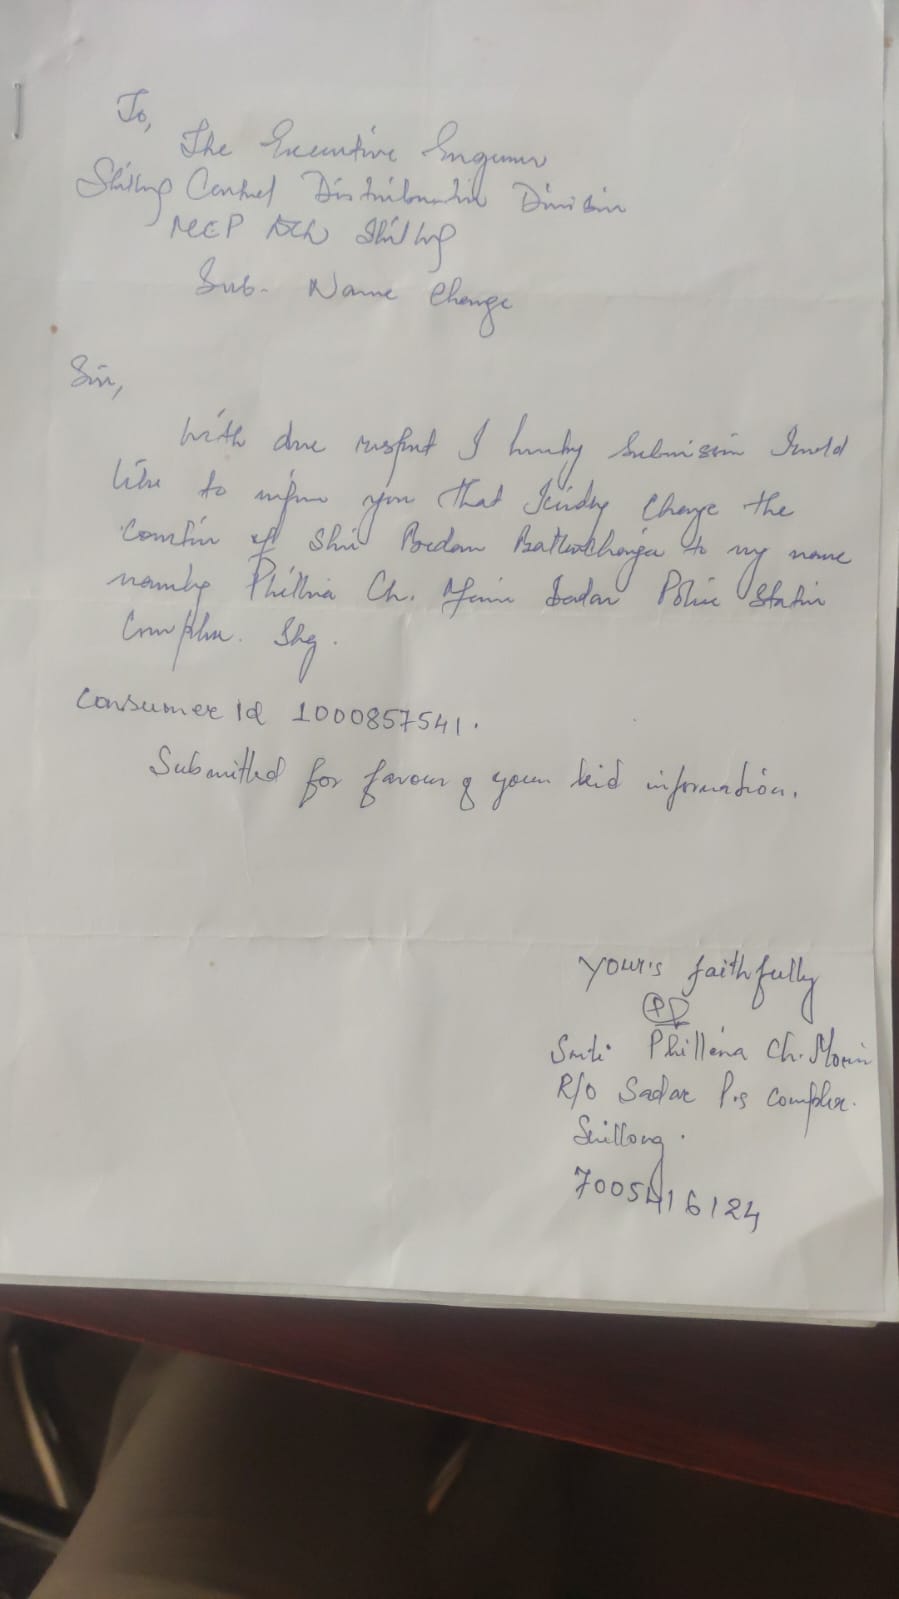 To,
The Executive Engineer
Shillong Central Distribution Division
Shillong
Sub- Name Change
Sir,
With due respect I humbly Submission I would
like to inform you that kindly Change the
of Shri to my name
namely Phillina Ch. Sadar Police Station
Complex. Shg.
Consumer Id 1000857541.
Submitted for favour of your kid information.
Your's faithfully
Smti. Phillena Ch. Momin
R/O Sadar P.s Complex.
Shillong.
7005416124